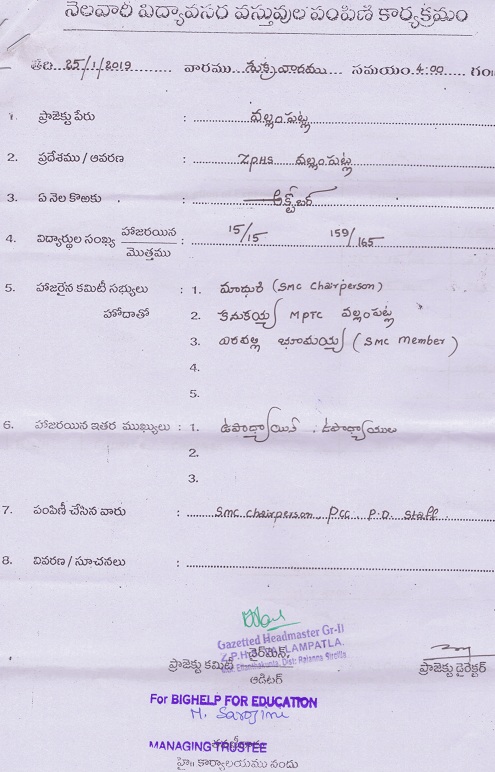 నెలవారీ విద్యావసర వస్తువుల పంపిణీ కార్యక్రమం
తేది 25/1/2019 వారము శుక్రవారము సమయం 4:00 గం॥
1. ప్రాజెక్టు పేరు : వల్లంపట్ల
2. ప్రదేశము / ఆవరణ : ZPHS వల్లంపట్ల
3. ఏ నెల కొఱకు : అక్టోబర్
4. విద్యార్థుల సంఖ్య హాజరయిన / మొత్తము : 15/15 159/165
5. హాజరైన కమిటీ సభ్యులు : 1. మాధురి (SMC Chairperson)
హోదాతో 2. కనుకయ్య MPTC వల్లంపట్ల
3. భూమయ్య (SMC Member)
4.
5.
6. హాజరయిన ఇతర ముఖ్యులు : 1. ఉపాధ్యాయిని, ఉపాధ్యాయుల
2.
3.
7. పంపిణీ చేసిన వారు : SMC Chairperson, PCC, P.D. Staff
8. వివరణ / సూచనలు :
Gazetted Headmaster Gr-II
Z.P.H.S. VALLAMPATLA.
Dist: Rajanna Sircilla
ప్రాజెక్టు కమిటీ చైర్మెన్, ప్రాజెక్టు డైరెక్టర్
ఆడిటర్
For BIGHELP FOR EDUCATION
M. Sarojini
MANAGING TRUSTEE
హై॥ కార్యాలయము నందు